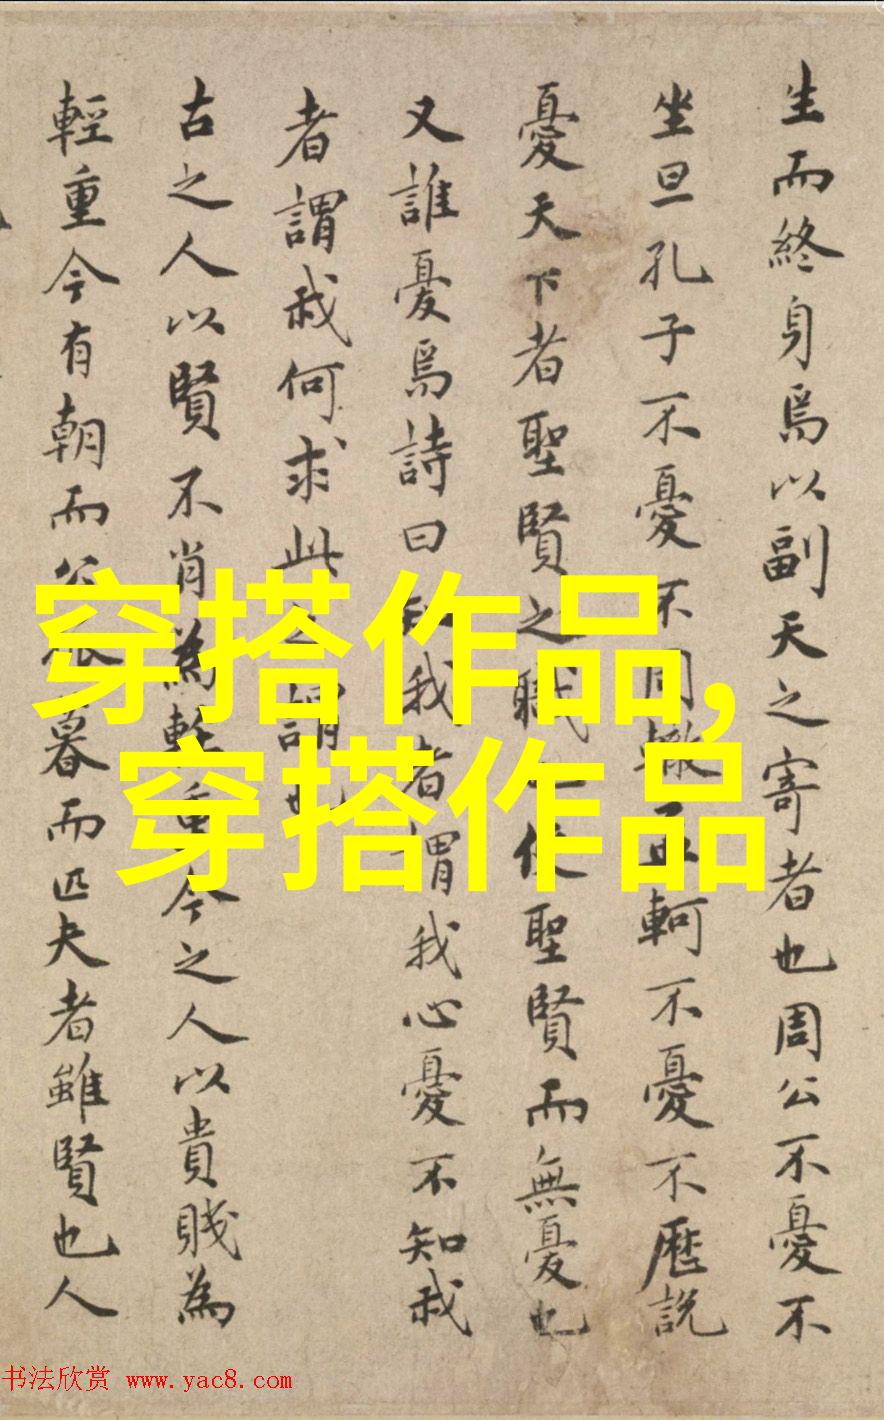 生而終身焉以副天之寄者也周公不憂不
坐旦孔子不憂不同轍孟軻不憂不歷說
憂天下者聖賢之職使聖賢而無憂也
又誰憂焉詩曰知我者謂我心憂不知我
者謂我何求此之謂也
古之人以賢不肖為輕重今之人以貴賤為
輕重今有朝而公暮而匹夫者雖賢也人
穿搭作品,
穿搭作品
书法欣赏 www.yac8.com